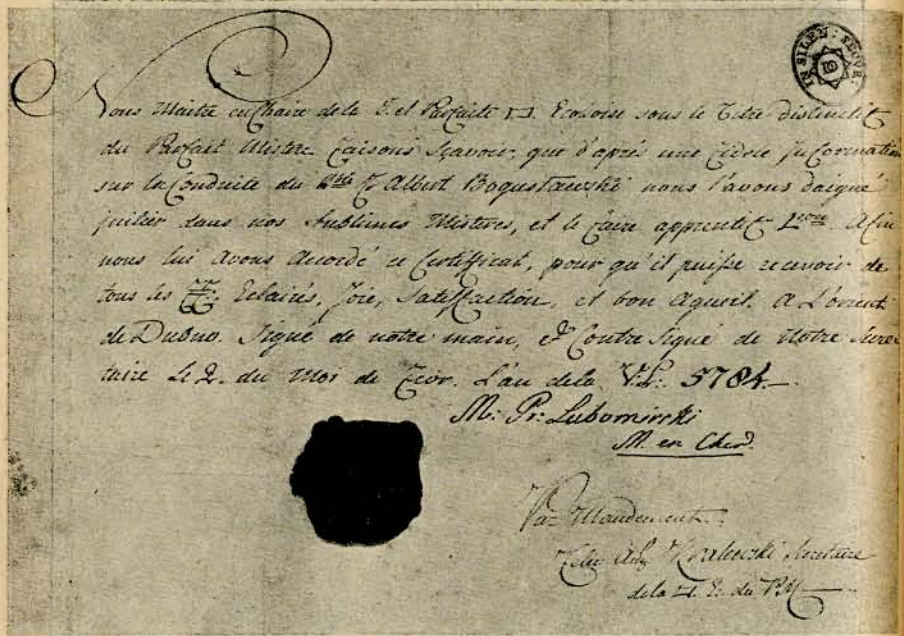 IN SILEN:
Nous Maitre en Chaire de la J. et Parfaite □ Ecoſoise sous le Titre distinctif
du Parfait Mistere faisons Sçavoir, que d'aprés une fidele Information
sur la Conduite du F. Albert Bogusławski nous l'avons daigné
initier dans nos Sublimes Misteres, et le faire apprentif Afin
nous lui avons Accordé ce Certifficat, pour qu'il puiſse recevoir de
tous les FF. Eclairés, Joie, Satiffaction, et bon Aqueil. A L'orient
de Dubno. Signé de notre main, & Contre Signé de Notre Secre
taire Le 2. du Moi de Fevr. L'an dela V: L: 5784.
M: Pr: Lubomirski
M. en Cher.
Par Mandement.
Secretaire
dela □ E: du PM